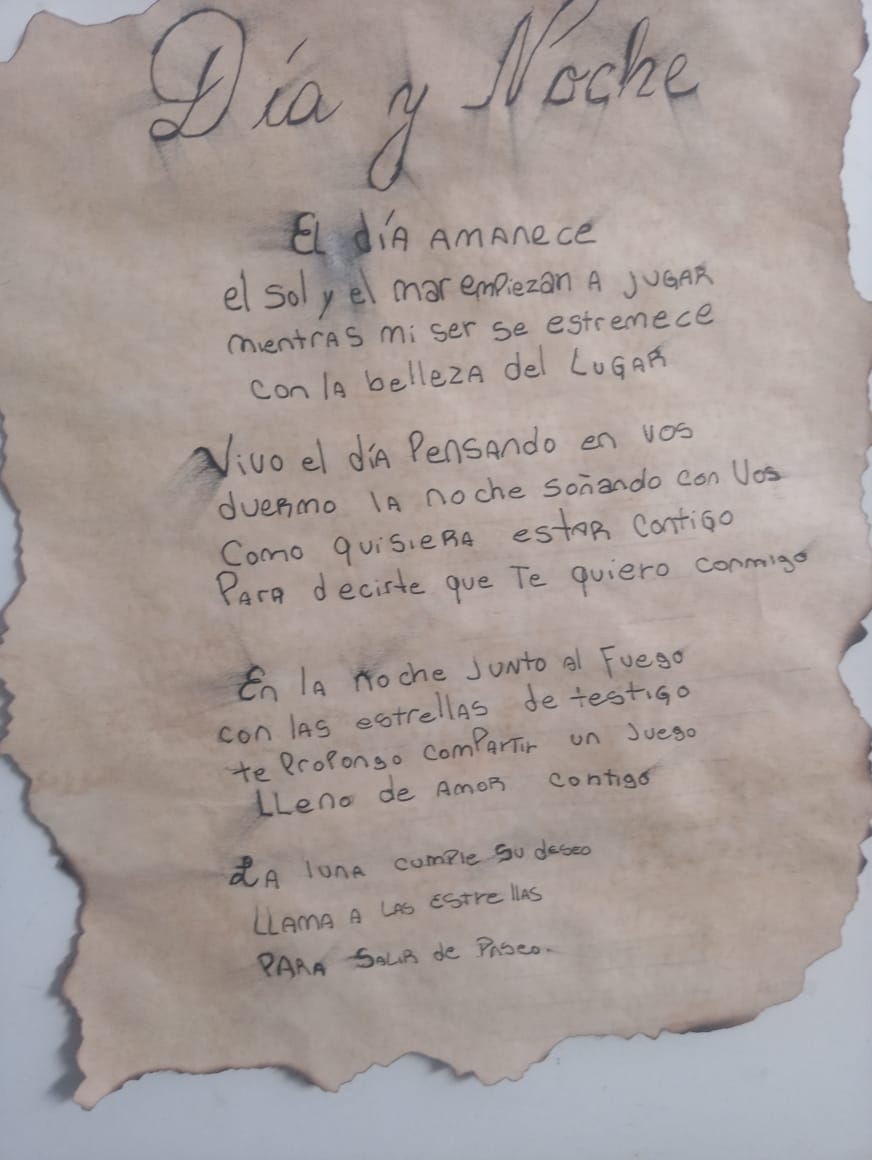 Día y Noche
El día amanece
el sol y el mar empiezan a jugar
mientras mi ser se estremece
con la belleza del lugar
Vivo el día pensando en vos
duermo la noche soñando con vos
como quisiera estar contigo
Para deciste que te quiero conmigo
En la noche junto al fuego
con las estrellas de testigo
te propongo compartir un juego
lleno de amor contigo
La luna cumple su deseo
llama a las estrellas
para salir de paseo.